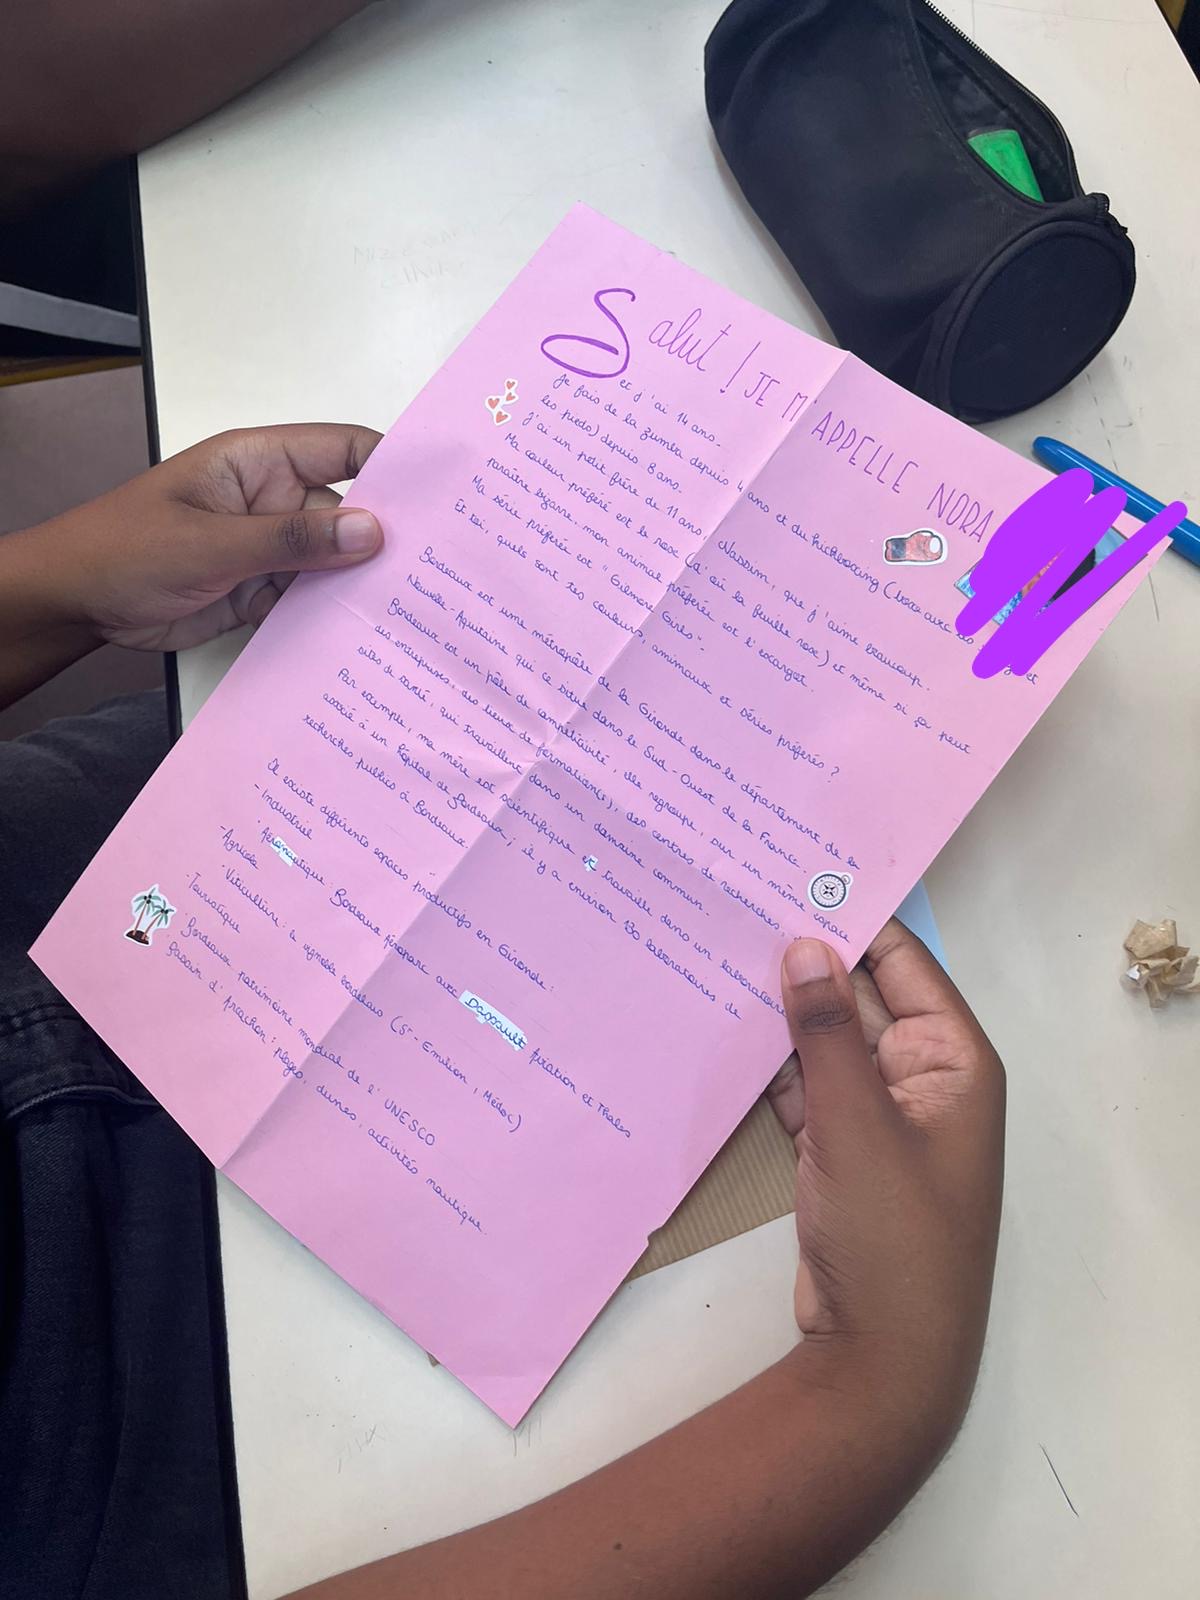 Salut ! JE M'APPELLE NORA
et j'ai 14 ans.
Je fais de la zumba depuis 4 ans et du kickboxing (boxe avec les et
les pieds) depuis 8 ans.
J'ai un petit frère de 11 ans, Nassim, que j'aime beaucoup.
Ma couleur préféré est le rose (d'où la feuille rose) et même si ça peut
paraître bizarre, mon animal préférée est l'escargot.
Ma série préférée est "Gilmore Girls".
Et toi, quels sont tes couleurs, animaux et séries préférés ?
Bordeaux est une métropole de la Gironde dans le département de la
Nouvelle-Aquitaine qui ce situe dans le Sud-Ouest de la France.
Bordeaux est un pôle de compétitivité, elle regroupe, sur un même espace
des entreprises, des lieux de formation(s), des centres de recherches,
sites de santé, qui travaillent dans un domaine commun.
Par exemple, ma mère est scientifique et travaille dans un laboratoire
associé à un hôpital de Bordeaux ; il y a environ 130 laboratoires de
recherches publics à Bordeaux.
Il existe différents espaces productifs en Gironde :
- Industriel
· Aéronautique : Bordeaux Aéroparc avec Dassault Aviation et Thales
- Agricole
· Viticulture : le vignoble bordelais (St-Emilion, Médoc)
- Touristique
· Bordeaux patrimoine mondial de l'UNESCO
· Bassin d'Arcachon : plages, dunes, activités nautique.